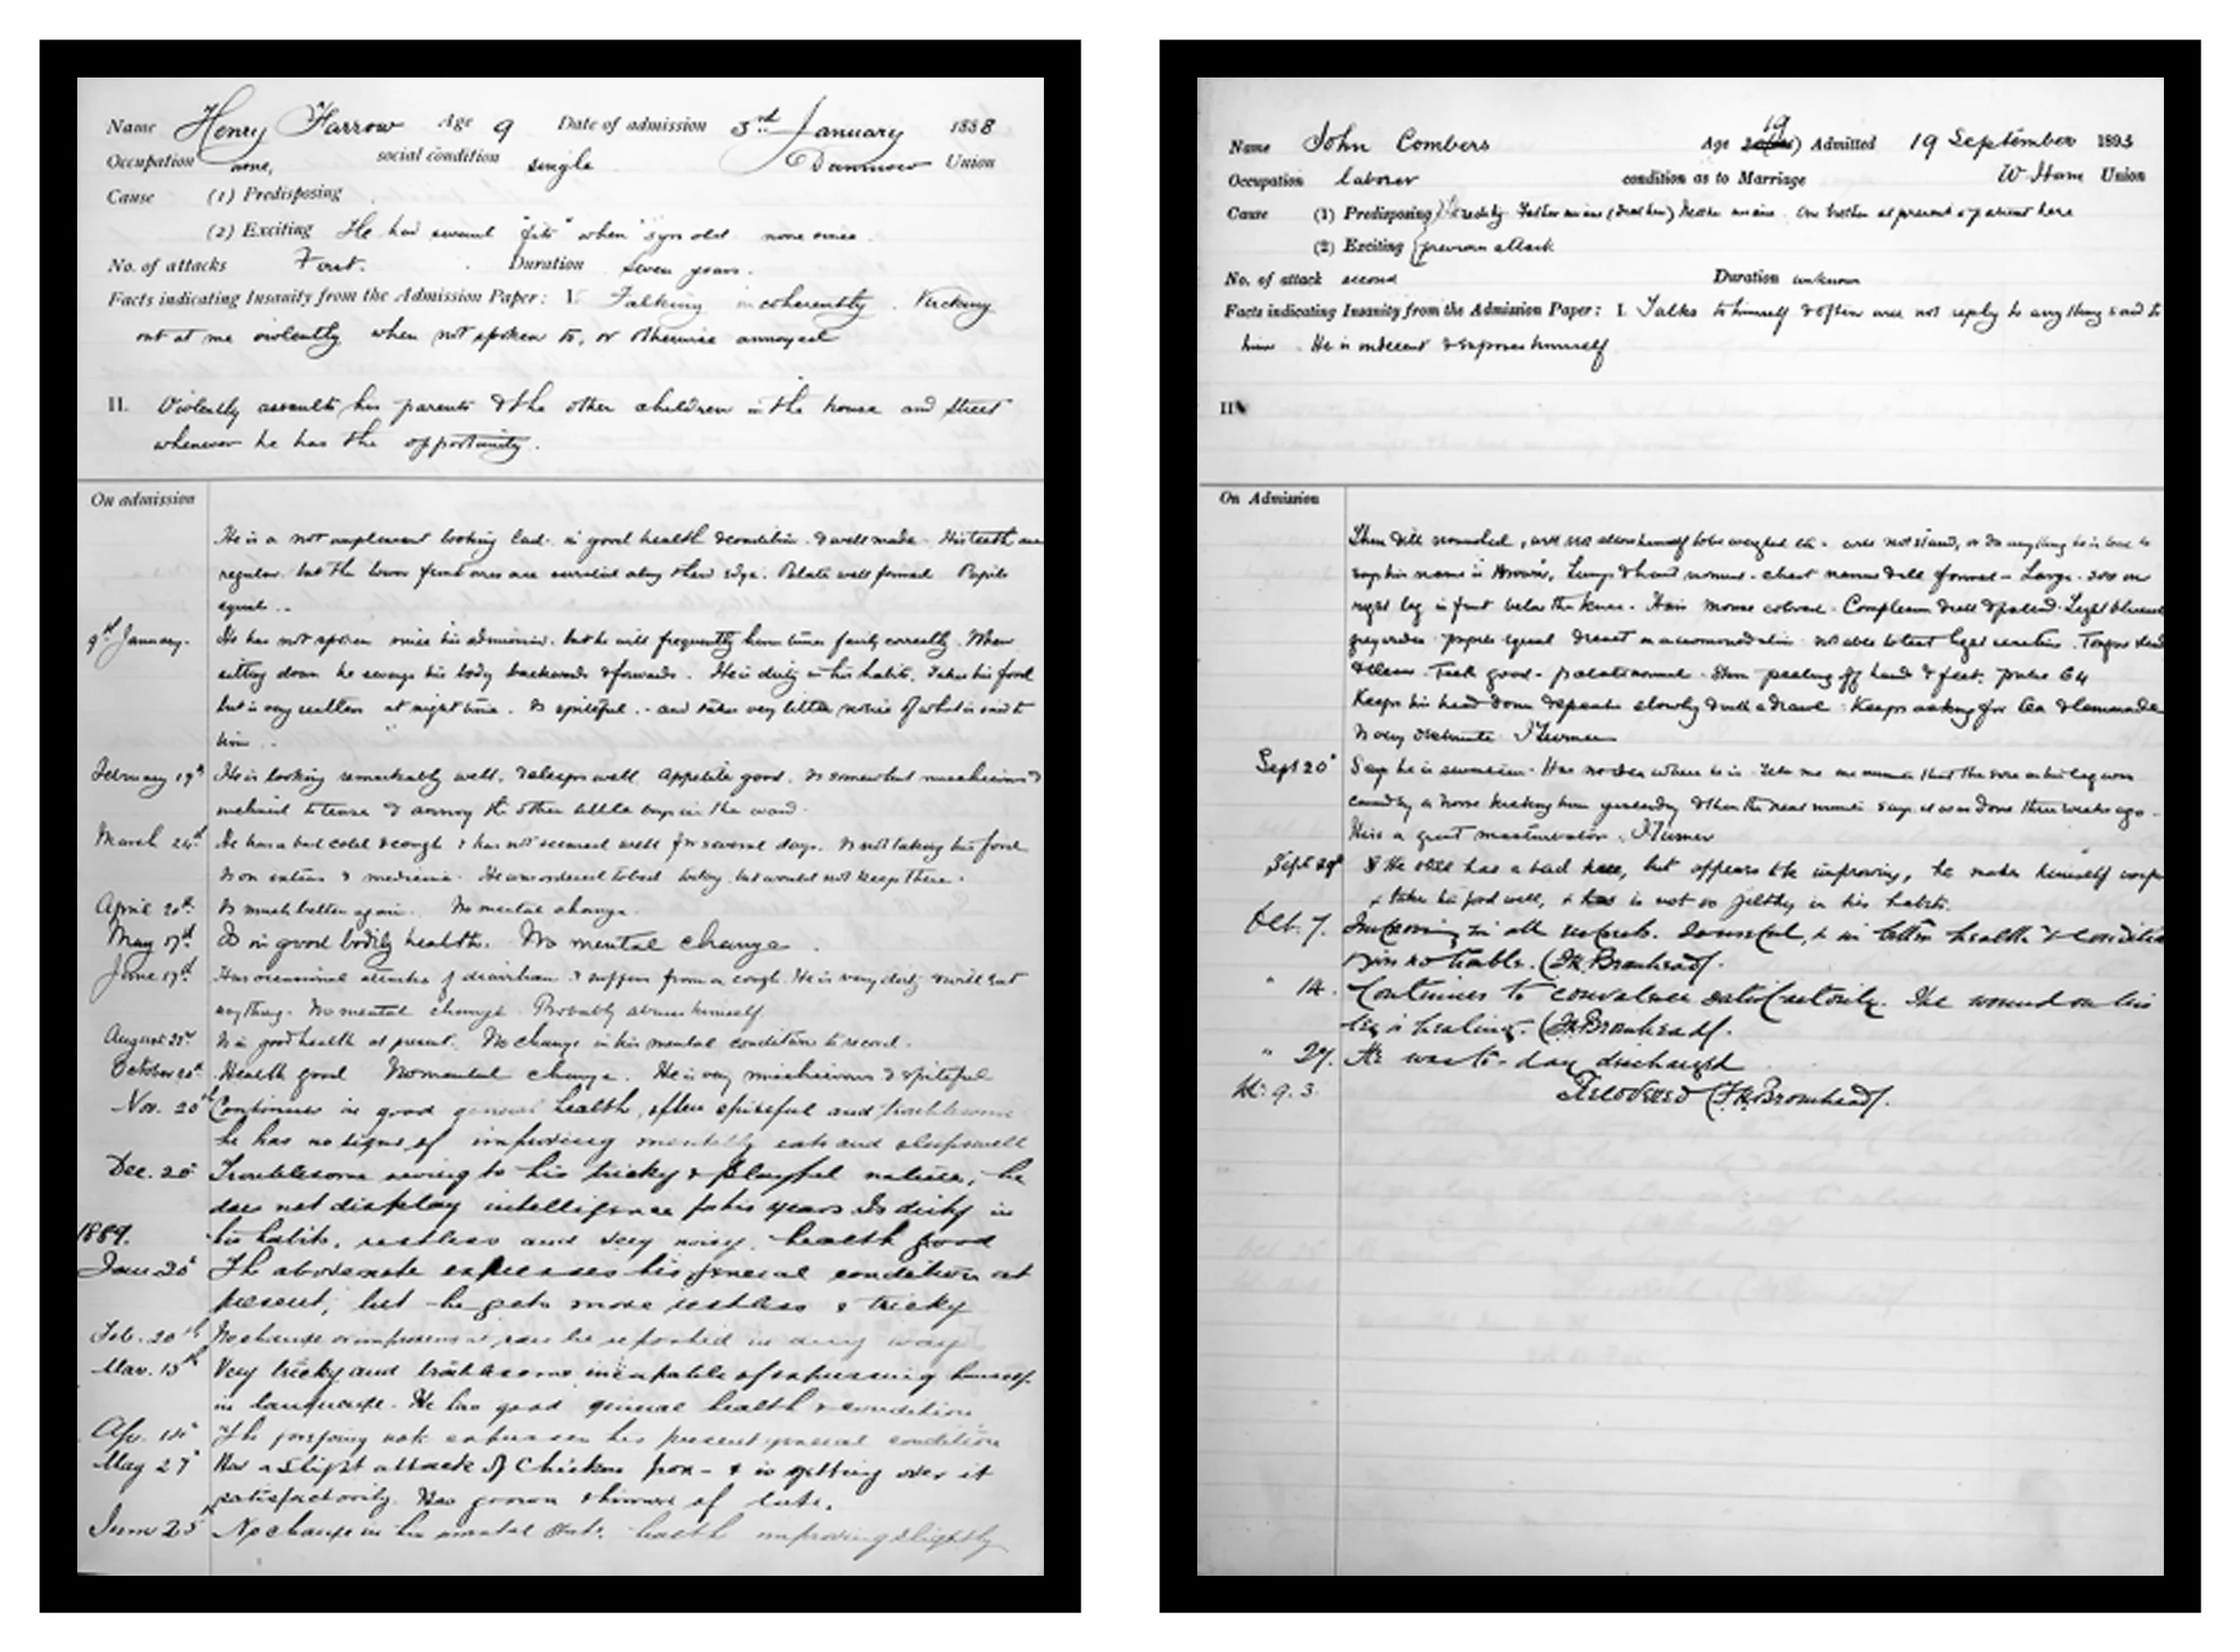 Name Henry Farrow Age 9 Date of admission 3rd January 1888
Occupation none, social condition single Dunmow Union
Cause (1) Predisposing
(2) Exciting He had several "fits" when 3 yrs old none since.
No. of attacks First. Duration Seven years.
Facts indicating Insanity from the Admission Paper: I. Talking incoherently. Kicking
out at me violently when not spoken to, or otherwise annoyed
II. Violently assaults his parents & the other children in the house and street
whenever he has the opportunity.
On admission
He is a not unpleasant looking lad. in good health & condition. & well made. His teeth are
regular. but the lower front ones are serrated along their edge. Palate well formed Pupils
equal..
9th January. He has not spoken since his admission. but he will frequently hum tunes fairly correctly. When
sitting down he swings his body backwards & forwards. He is dirty in his habits. Takes his food
but is very restless at night time. Is spiteful.- and takes very little notice of what is said to
him..
February 19th He is looking remarkably well. & sleeps well. Appetite good. Is somewhat mischievous &
inclined to tease & annoy the other little boys in the ward.
March 24th He has a bad cold & cough & has not seemed well for several days. Is not taking his food
Is on extras & medicine. He was ordered to bed today but would not keep there.
April 20th Is much better again. No mental change.
May 17th Is in good bodily health. No mental change.
June 17th Has occasional attacks of diarrhoea & suffers from a cough. He is very dirty & will eat
anything. No mental change. Probably abuses himself.
August Is in good health at present. No change in his mental condition to record.
October 20th Health good No mental change. He is very mischievous & spiteful
Nov. 20th Continues in good general health, often spiteful and troublesome
he has no signs of improving mentally eats and sleeps well
Dec. 20 Troublesome owing to his tricky & playful nature, he
does not display intelligence for his years Is dirty in
1889. his habits, restless and very noisy. health good
Jan 20 The above note expresses his general condition at
present, but he gets more restless & tricky
Feb. 20th No change or improvement can be reported in any way
Mar. 15th Very tricky and troublesome incapable of expressing himself
in language. He has good general health & condition
Apr. The foregoing note expresses his present general condition
May 27 Has a slight attack of Chicken pox - & is getting over it
satisfactorily. Has grown thinner of late.
June 25 No change in his mental state. health improving slightly
Name John Combers Age 19 Admitted 19 September 1893
Occupation laborer condition as to Marriage W. Ham Union
Cause (1) Predisposing Heredity Father insane (drunken) Mother insane. One brother at present a patient here
(2) Exciting previous attack
No. of attack second Duration unknown
Facts indicating Insanity from the Admission Paper: I. Talks to himself & often will not reply to anything said to
him. He is indecent & exposes himself
II
On Admission
Thin & ill nourished, will not allow himself to be weighed etc. will not stand, or do anything he is told to
says his name is Brown. Lungs & heart normal. chest narrow & ill formed - Large sore on
right leg in front below the knee. Hair mouse colored. Complexion dull & pallid. Light blueish
grey irides pupils equal & react on accommodation not able to test light reaction. Tongue
& clean. Teeth good - palate normal. Skin peeling off hands & feet. pulse 64
Keeps his head down & speaks slowly & with a drawl. Keeps asking for tea &
Is very obstinate J Turner
Sept 20 Says he is seventeen. Has no idea where he is. Tells me one minute that the sore on his leg was
caused by a horse kicking him yesterday & then the next minute says it was done three weeks ago.
He is a great masturbator. J Turner
Sept 29 He still has a bad knee, but appears to be improving, he makes himself
& takes his food well, & is not so filthy in his habits.
Oct. 7. Improving in all respects. & in better health & condition
(F.R. Bromhead).
" 14. Continues to convalesce satisfactorily. The wound on his
leg is healing. (F.R. Bromhead).
" 27. He was to-day discharged
Wt. 9. 3. Recovered (F.R. Bromhead).